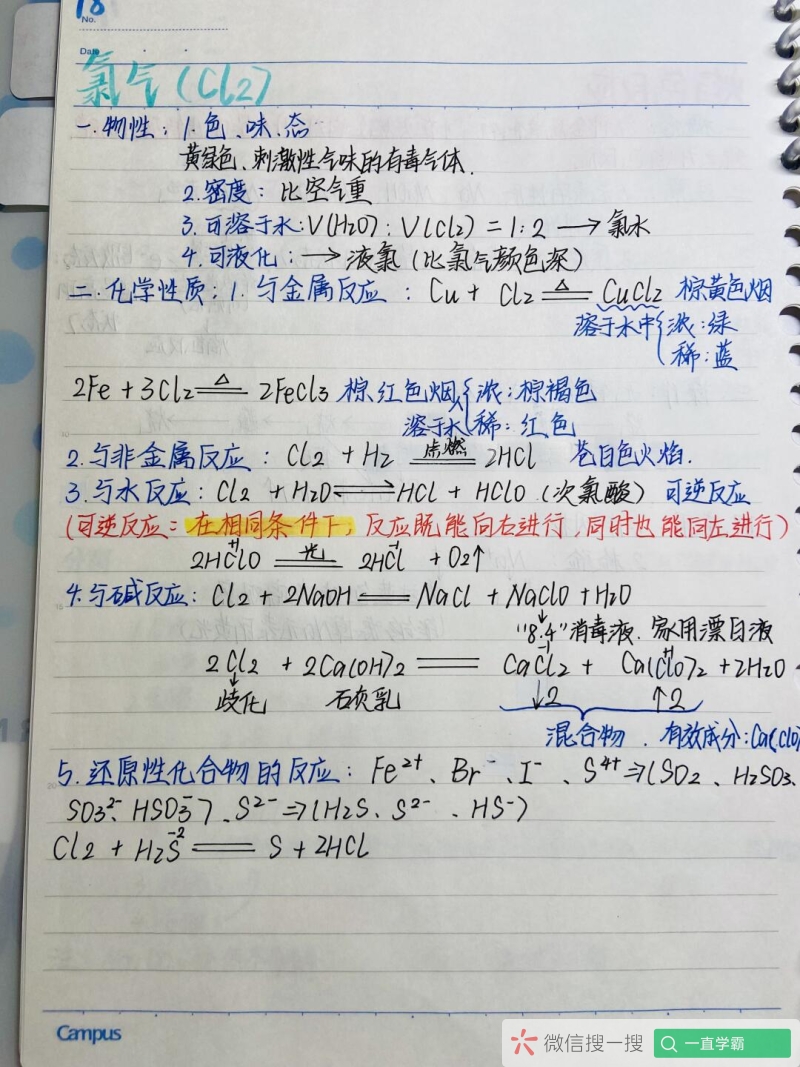 18
No.
Date
氯气(Cl2)
一.物性:1.色、味、态
黄绿色、刺激性气味的有毒气体.
2.密度:比空气重
3.可溶于水:V(H2O):V(Cl2)=1:2→氯水
4.可液化:→液氯(比氯气颜色深)
二.化学性质:1.与金属反应:Cu+Cl2=△=CuCl2 棕黄色烟
溶于水中{浓:绿
稀:蓝
2Fe+3Cl2=△=2FeCl3 棕红色烟{浓:棕褐色
溶于水{稀:红色
2.与非金属反应:Cl2+H2=点燃=2HCl 苍白色火焰.
3.与水反应:Cl2+H2O⇌HCl+HClO(次氯酸)可逆反应
(可逆反应:在相同条件下,反应既能向右进行,同时也能向左进行)
+1 -1
2HClO=光=2HCl+O2↑
4.与碱反应:Cl2+2NaOH=NaCl+NaClO+H2O
↓
"8.4"消毒液.家用漂白液
-1 +1
2Cl2+2Ca(OH)2=CaCl2+Ca(ClO)2+2H2O
↓歧化 石灰乳 ↓2 ↑2
混合物.有效成分:Ca(ClO)
5.还原性化合物的反应:Fe2+、Br-、I-、S4+⇒(SO2、H2SO3、
SO32-、HSO3-)、S2-⇒(H2S、S2-、HS-)
-2
Cl2+H2S=S+2HCl
Campus
微信搜一搜
一直学霸